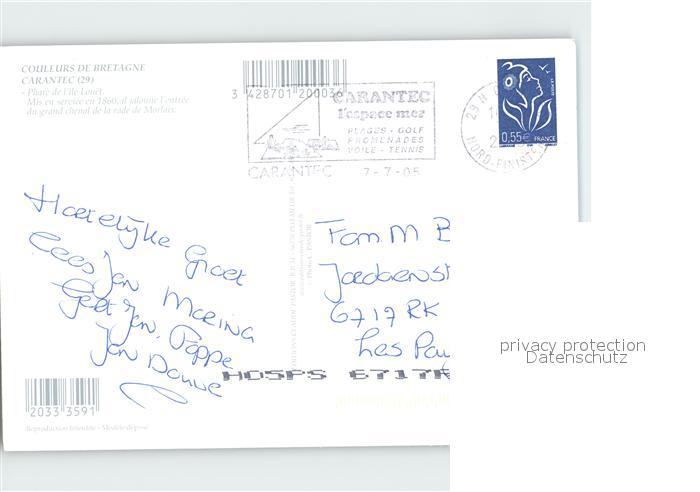 COULEURS DE BRETAGNE
CARANTEC (29)
- Phare de l'île Louët.
Mis en service en 1860, il jalonne l'entrée
du grand chenal de la rade de Morlaix.
3 428701 200036
CARANTEC
l'espace mer
PLAGES - GOLF
PROMENADES
VOILE - TENNIS
CARANTEC 7-7-05
29 N
NORD-FINISTERE
LA POSTE
0,55€ FRANCE
Hartelijke Groet
Cees Jan Marina
Geert Jan, Foppe
Jan Douwe
Fam. M B
6717 RK
Les Pay
HOSPS 6717R
2033 3591
Reproduction Interdite - Modèle déposé
privacy protection
Datenschutz